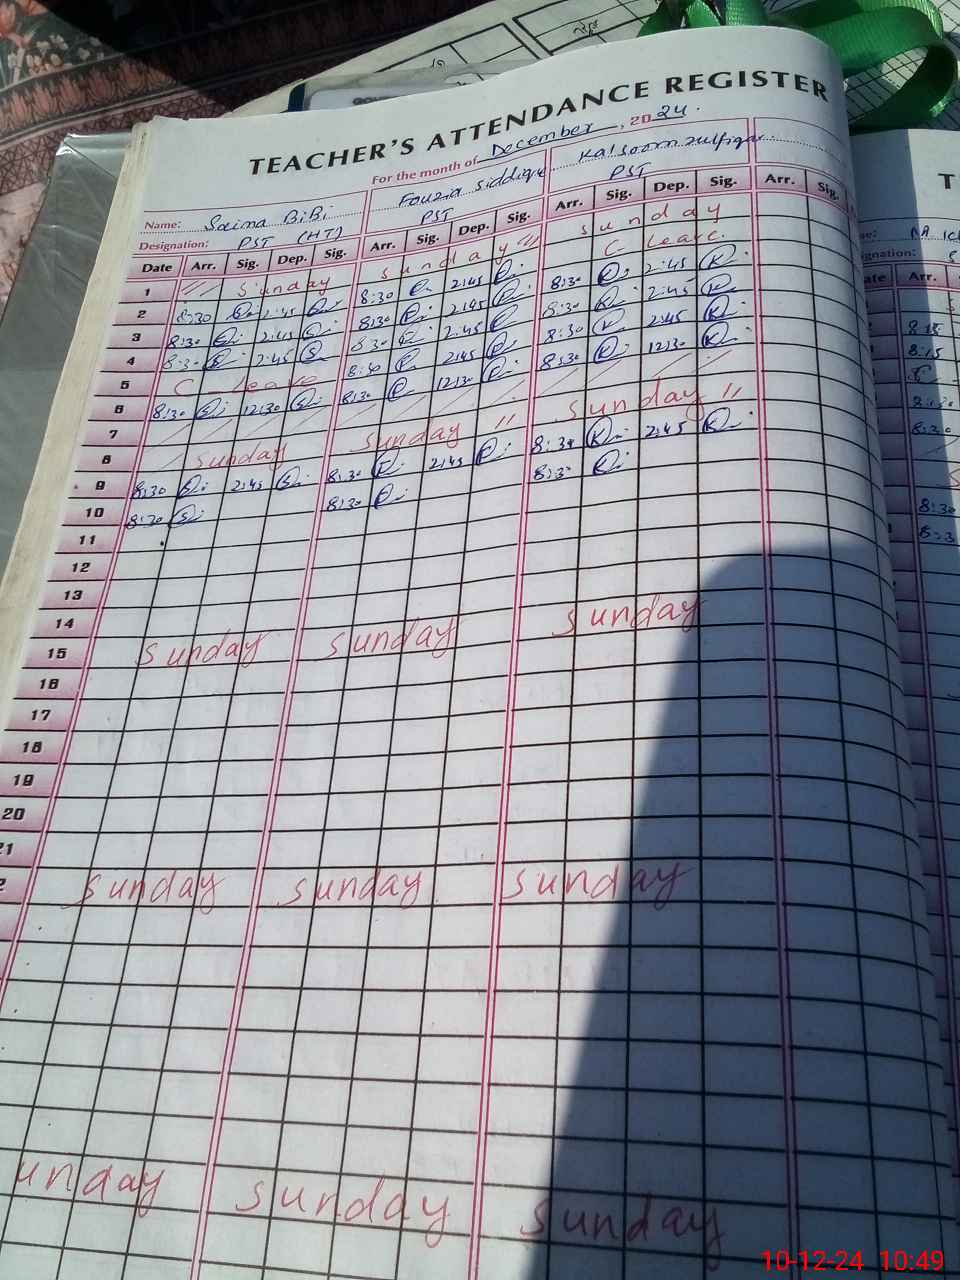 TEACHER'S ATTENDANCE REGISTER
For the month of December, 2024.
Name: Saima BiBi Fouzia Siddique Kalsoom zulfiqar
Designation: PST (HT) PST PST
Date Arr. Sig. Dep. Sig. Arr. Sig. Dep. Sig. Arr. Sig. Dep. Sig. Arr. Sig.
1 " Sunday Sunday " Sunday
2 8:30 2:45 8:30 2:45 C Leave.
3 8:30 2:45 8:30 2:45 8:30 2:45
4 8:30 2:45 8:30 2:45 8:30 2:45
5 C leave 8:30 2:45 8:30 2:45
6 8:30 12:30 8:30 12:30 8:30 12:30
7
8 Sunday Sunday " Sunday "
9 8:30 2:45 8:30 2:45 8:30 2:45
10 8:30 8:30 8:30
11
12
13
14
15 Sunday Sunday Sunday
16
17
18
19
20
21
2 Sunday Sunday Sunday
unday Sunday Sunday
T
Arr.
8:15
8:15
8:30
8:30
10-12-24 10:49